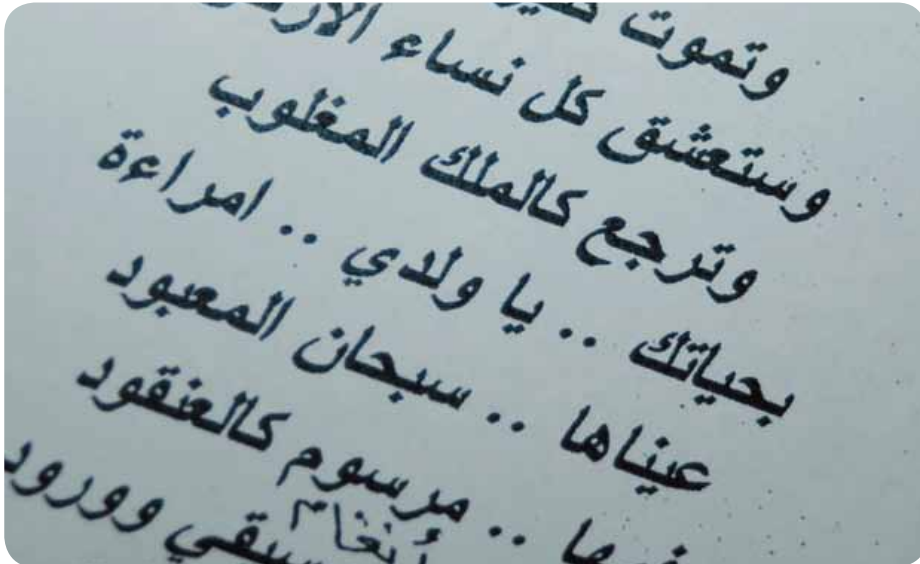 وتموت
وستعشق كل نساء
وترجع كالملك المغلوب
بحياتك .. يا ولدي .. امراءة
عيناها .. سبحان المعبود
.. مرسوم كالعنقود
أنغام
وورود